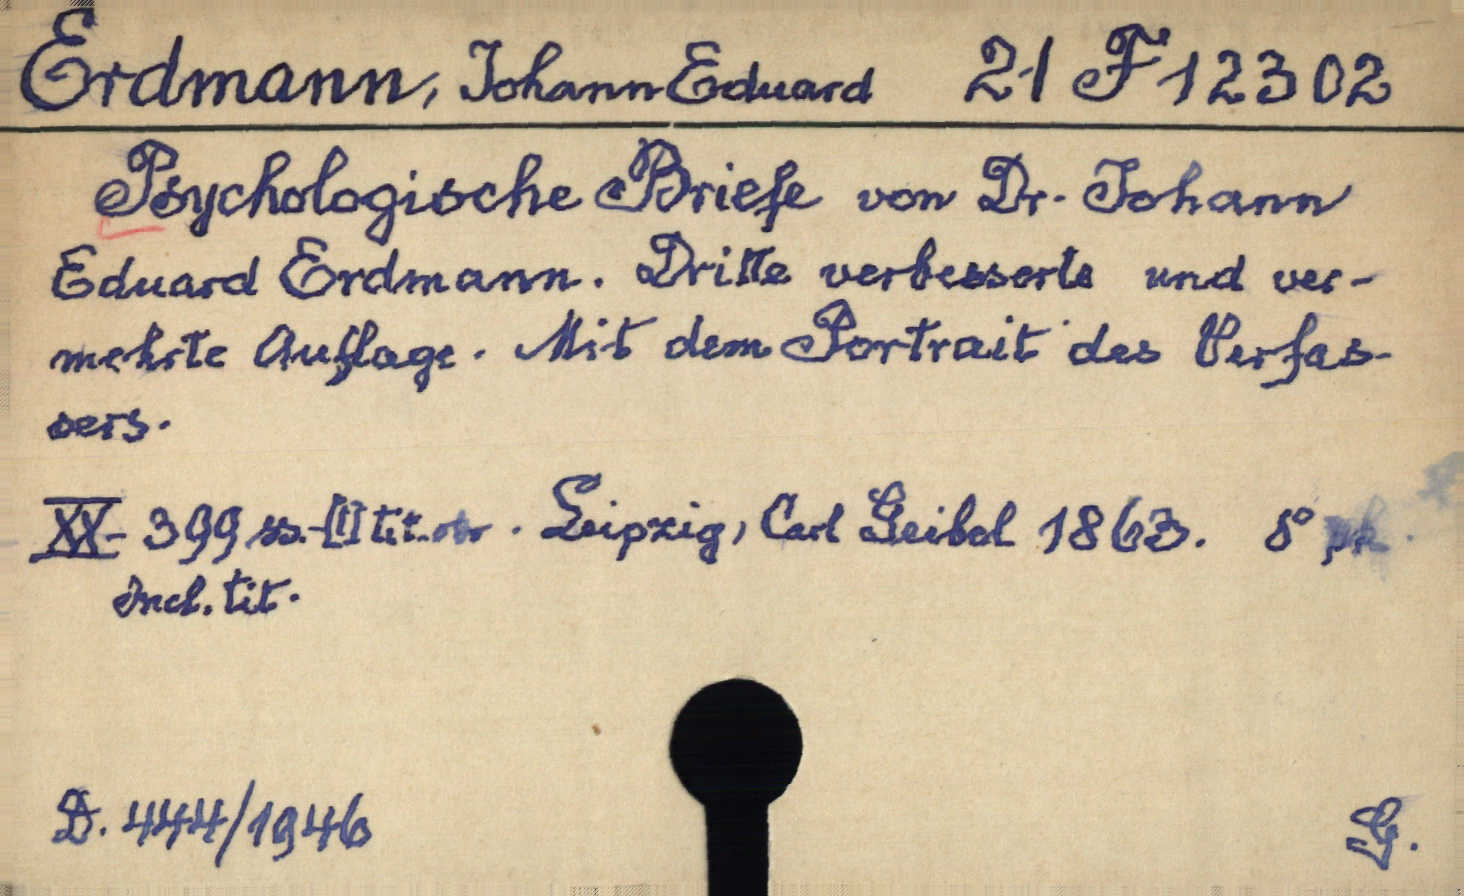 Erdmann, Johann Eduard 21 F 12302
Psychologische Briefe von Dr. Johann
Eduard Erdmann. Dritte verbesserte und ver-
mehrte Auflage. Mit dem Portrait des Verfas-
sers.
XX- 399 ss.-[1] tit. . Leipzig, Carl Geibel 1863. 8°
Incl. tit.
D. 444/1946
G.